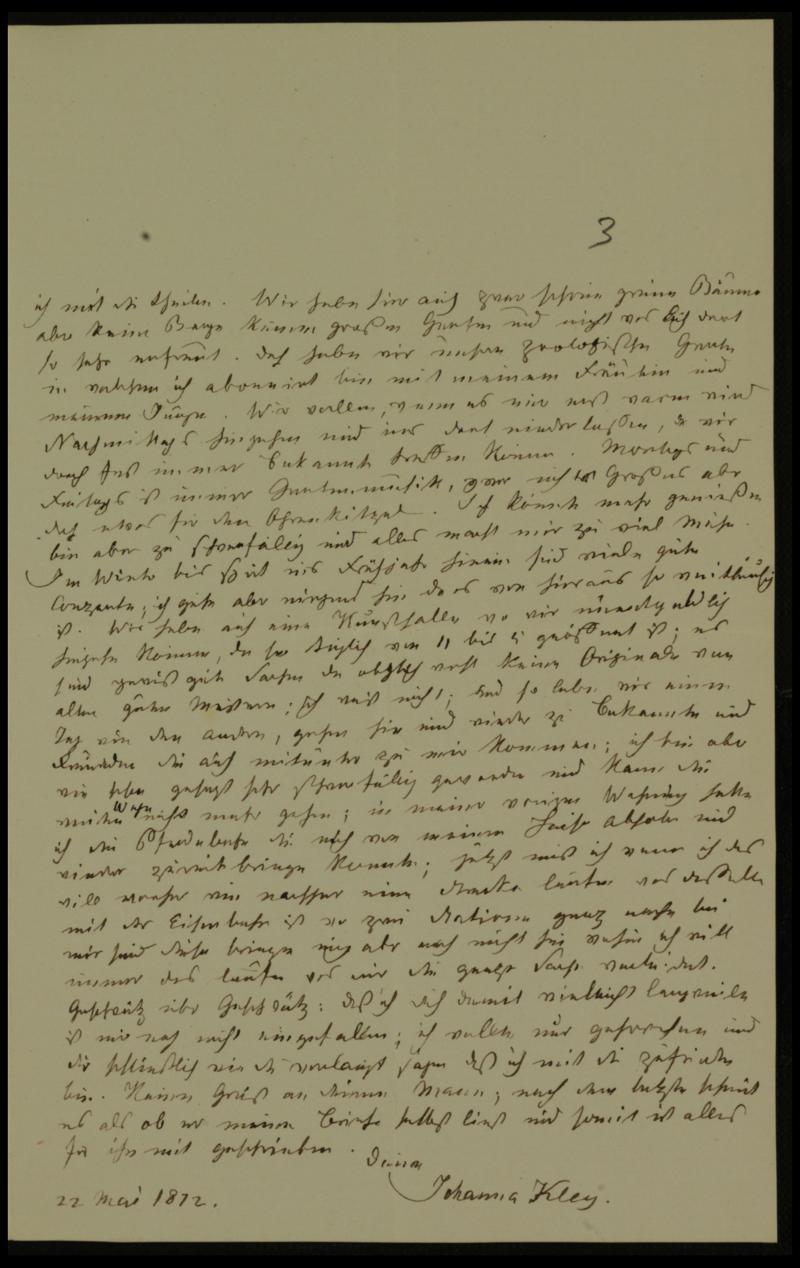 3
ich mit dir theilen. Wir haben hier auch zwar schöne grüne Bäume
aber keine Berge keinen großen Garten und nicht was Euch dort
so sehr erfreut. Doch haben wir unsern zoologischen Garten
in welchem ich abonnirt bin mit meinem Fräulein und
meinem Jungen. Wir wollen, wenn es nur erst warm wird
Nachmittags hingehen und uns dort niederlassen, da wir
doch fast immer Bekannte treffen können. Montags und
Freitags ist immer Gartenmusik, zwar nichts Großes aber
doch etwas für den Ohrenkitzel. Ich könnte mehr genießen
bin aber zu schwerfällig und alles macht mir zu viel Mühe.
Im Winter bis spät ins Frühjahr hinein sind viele gute
Conzerte, ich gehe aber nirgend hin da es von hieraus so weitläufig
ist. Wir haben auch eine Kunsthalle wo wir unentgeldlich
hingehn können, da sie täglich von 11 bis 5 geöffnet ist; es
sind gewiß gute Sachen da obgleich wohl keine Originale von
alten guten Meistern; ich weiß nicht; und so leben wir einen
Tag wie den andern, gehen hin und wieder zu Bekannten und
Freunden die auch mitunter zu mir kommen; ich bin aber
wie schon gesagt sehr schwerfällig geworden und kann die
weiten Wege nicht mehr gehen; in meiner vorigen Wohnung hatte
ich die Pferdebahn die mich von meinem Hause abholen und
wieder zurück bringen konnte; jetzt muß ich wenn ich das
will vorher wie nachher eine Strecke laufen was dasselbe
mit der Eisenbahn ist wo zwei Stationen ganz nahe bei
mir sind diese bringen mich aber auch nicht hin wohin ich will
immer das laufen was mir die ganze Sache verleidet.
Geschwätz über Geschwätz: daß ich dich damit vielleicht langweile
ist mir noch nicht eingefallen; ich wollte nur gehorchen und
dir schließlich wie du verlangst sagen daß ich mit dir zufrieden
bin. Keinen Gruß an deinen Mann, nach dem letzten scheint
es als ob er meine Briefe selbst liest und somit ist alles
für ihn mit geschrieben.
Deine
Johanna Kley.
22 Mai 1872.